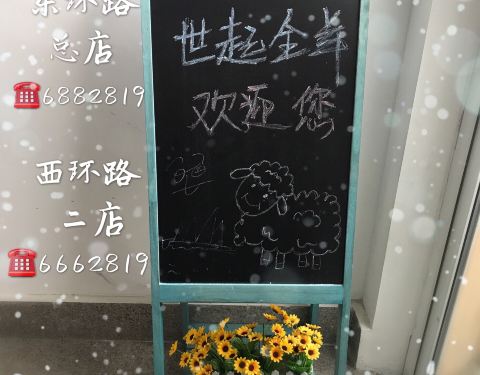 东环路
总店
☎6882819
西环路
二店
☎6662819
世起全羊
欢迎您